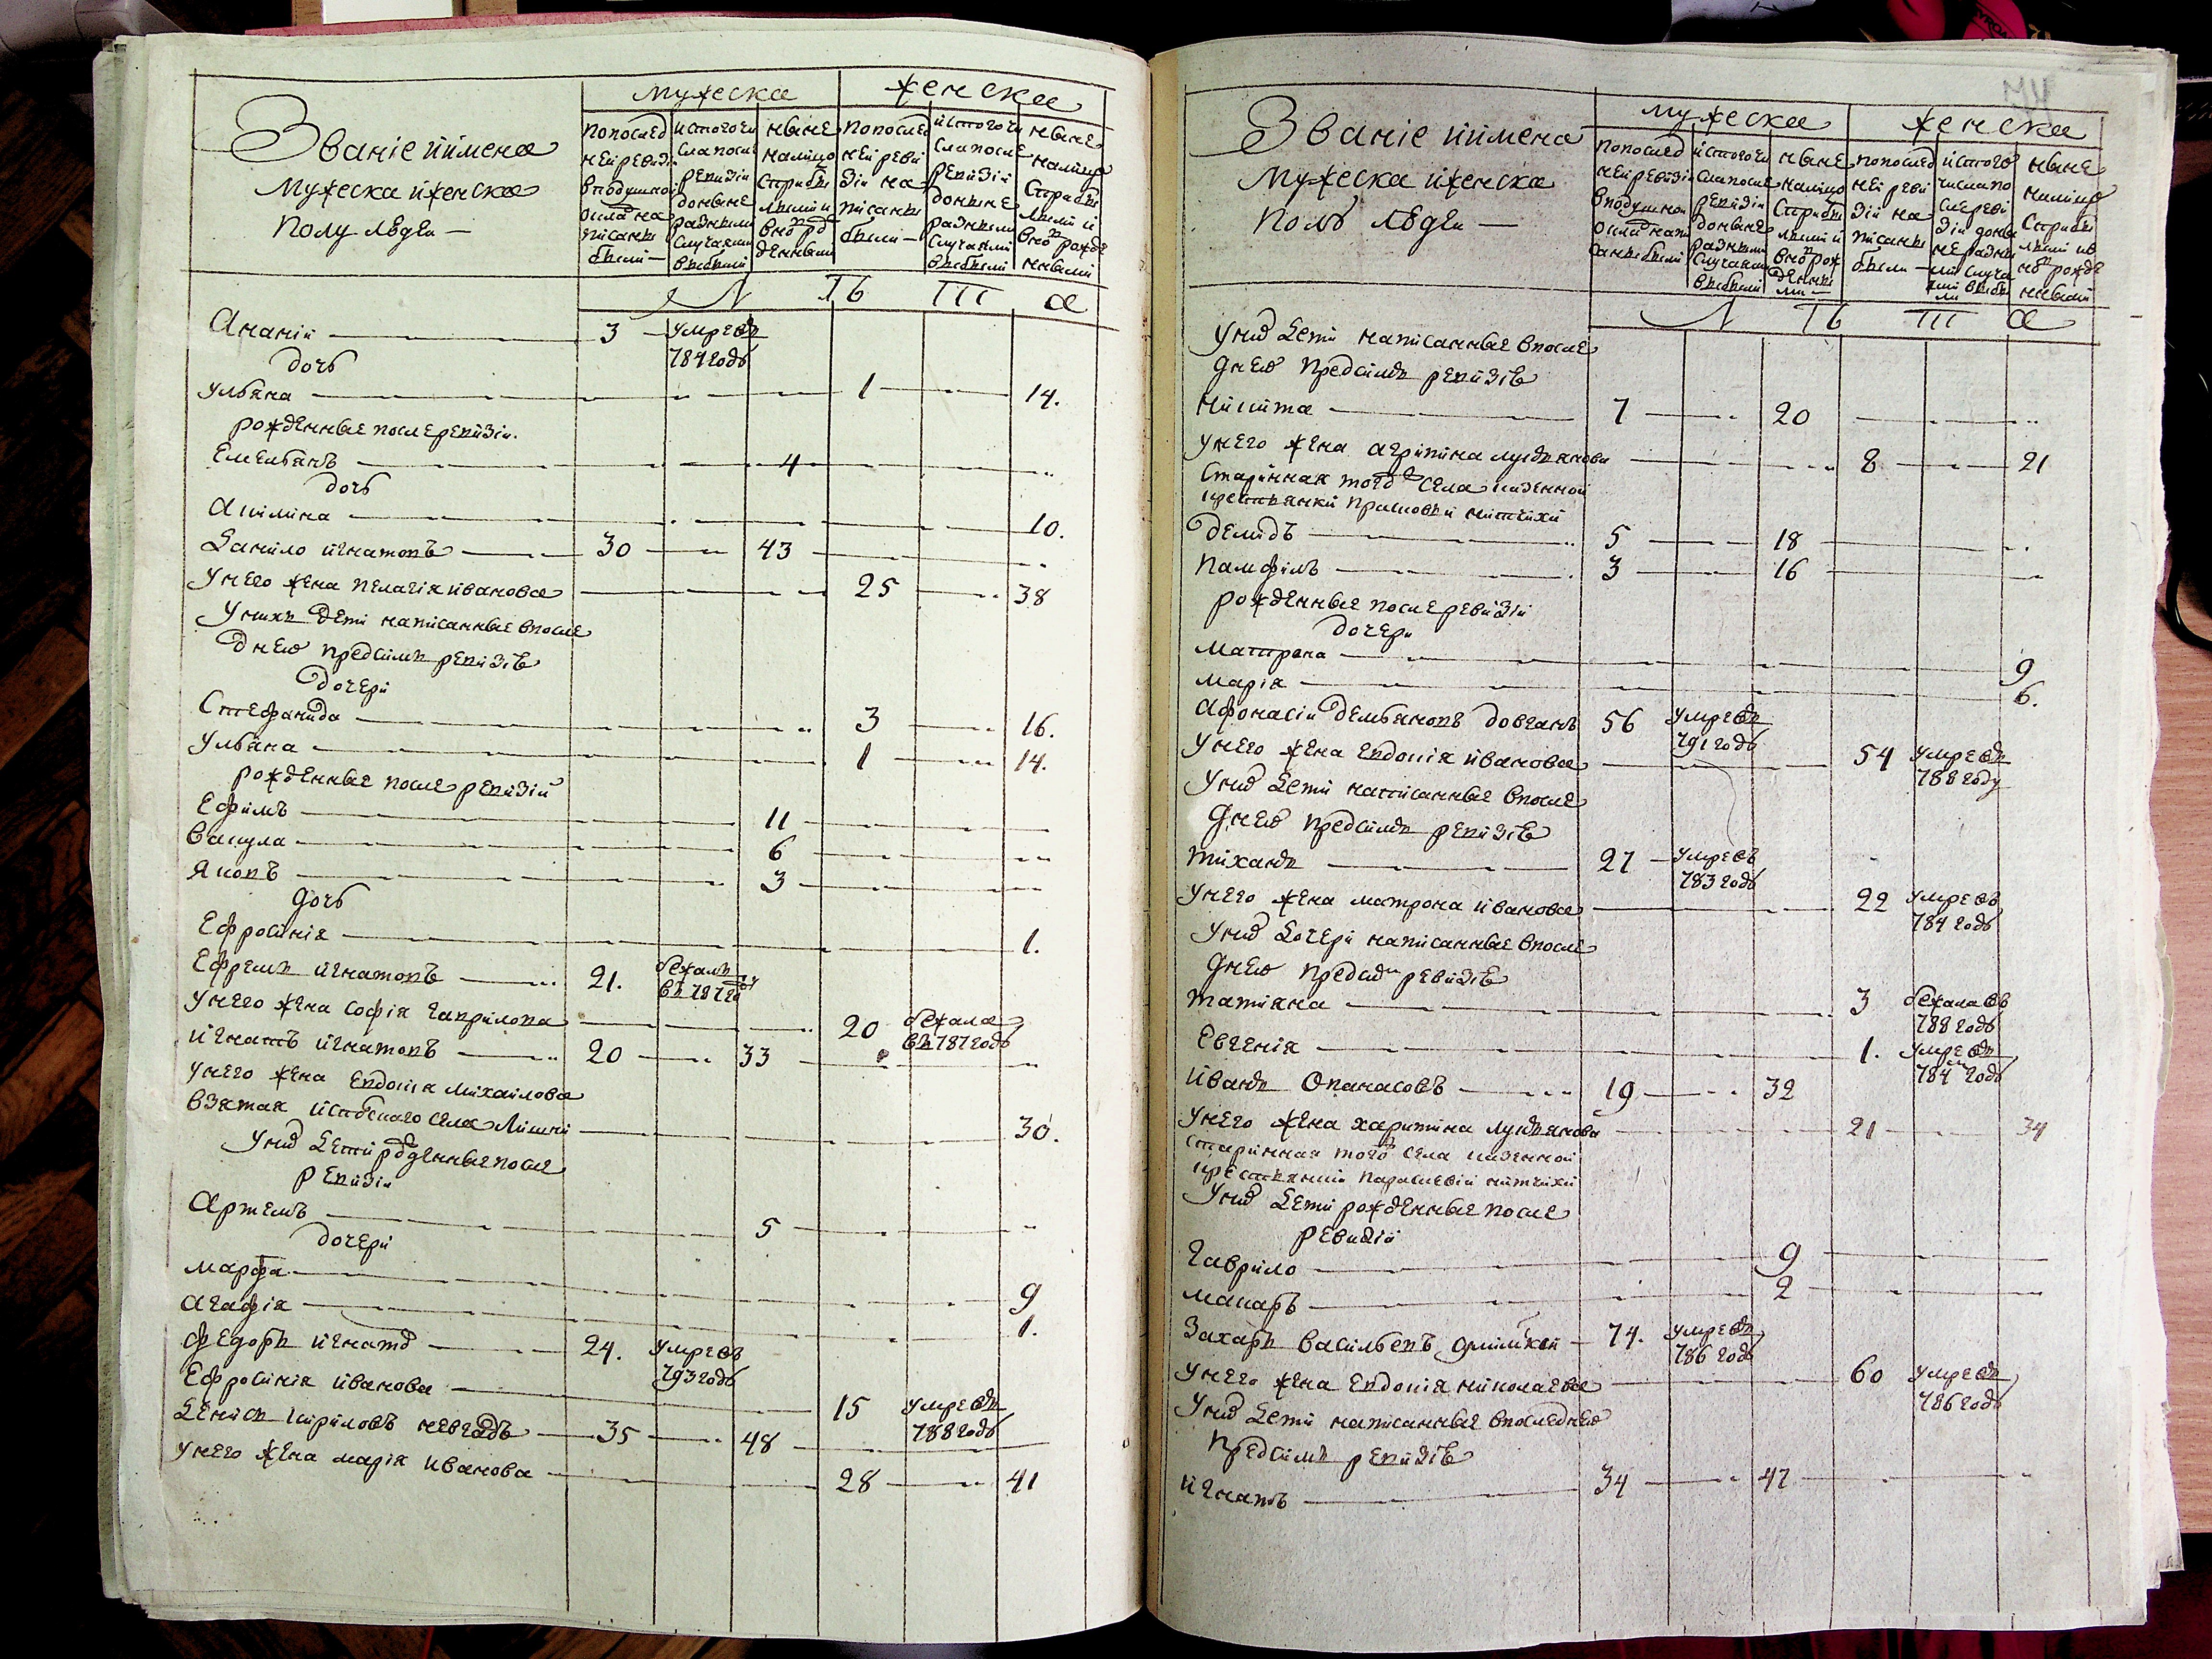 Званіе иимена
Мужеска иженска
полу людеи —
мужеска
женска
попослед
неиревизіи
вподушной
окладна
писаны
были —
истогочи
сла после
ревизіи
доныне
разными
случаями
выбыли
ныне
налицо
стрибы
лыми и
вновь рож
денными
попослед
неи реви
зіи на
писаны
были —
истогочи
сла после
ревизіи
доныне
разными
случаями
выбыли
ныне
налицо
стрибы
лыми и
вновь рожде
нными
Ананіи — 3 — умре въ
784 годъ
дочь
Ульяна — 1 — 14.
рожденные послеревизіи.
Емельянъ — 4
дочь
Акилина — 10.
Данило игнатовъ — 30 — 43
Унего жена пелагія иванова — 25 — 38
Унихъ дети написанные впосле
днею предсимъ ревизію
дочери
Стефанида — 3 — 16.
Ульяна — 1 — 14.
рожденные после ревизіи
Ефимъ — 11
Вакула — 6
Яковъ — 3
дочь
Ефросинія — 1.
Ефремъ игнатовъ — 21. бежалъ
въ 787 го
Унего жена софія гаврилова — 20 бежала
въ 787 годъ
Игнатъ игнатовъ — 20 — 33
Унего жена Евдокія михаилова
взятая
30.
Уни дети рожденные после
ревизіи
Артемъ — 5
дочери
Марфа — 9
Агафія — 1.
Федоръ игнато — 24. умре въ
793 годъ
Ефросинія иванова — 15 умре въ
788 годъ
Денисъ кириловъ — 35 — 48
Унего жена марія иванова — 28 — 41
Званіе иимена
мужеска иженска
полъ людеи —
мужеска
женска
попослед
неиревизіи
вподушной
окладнапи
саныбыли
истогочи
сла после
ревизіи
доныне
разными
случаями
выбыли
ныне
налицо
стрибы
лыми и
вновь рож
денны
ми —
попослед
неи реви
зіи на
писаны
были —
истого
числапо
слереви
зіи доны
не разны
ми случа
ями выбы
ли
ныне
налицо
стрибы
лыми ив
новь рожде
нными
Уни дети написанные впосле
днею предсимъ ревизію
Никита — 7 — 20
Унего жена агрипина лукьянова — 8 — 21
Старинная того села казенной
крестьянки
Демидъ — 5 — 18
Памфилъ — 3 — 16
рожденные послеревизіи
дочери
Матрена — 9
Марія — 6.
Афонасіи демьяновъ довгань 56 умре въ
791 годъ
Унего жена Евдокія иванова — 54 умре въ
788 году
Уни дети написанные впосле
днею предсимъ ревизію
Тихонъ — 27 — умре въ
783 годъ
Унего жена матрона иванова — 22 умре въ
784 годъ
Уни дочери написанные впосле
днею предсимъ ревизію
Татіяна — 3 бежала въ
788 годъ
Евгенія — 1. умре въ
784 годъ
Иванъ Опанасовъ — 19 — 32
Унего жена харитина лукьянова — 21 — 34
Старинная того села казенной
крестьянки
Уни дети рожденные после
ревизіи
Гаврило — 9
Макаръ — 2
Захаръ Васильевъ — 74. умре въ
786 годъ
Унего жена Евдокія николаева — 60 умре въ
786 годъ
Уни дети написанные впоследнею
предсимъ ревизію
Игнатъ — 34 — 47